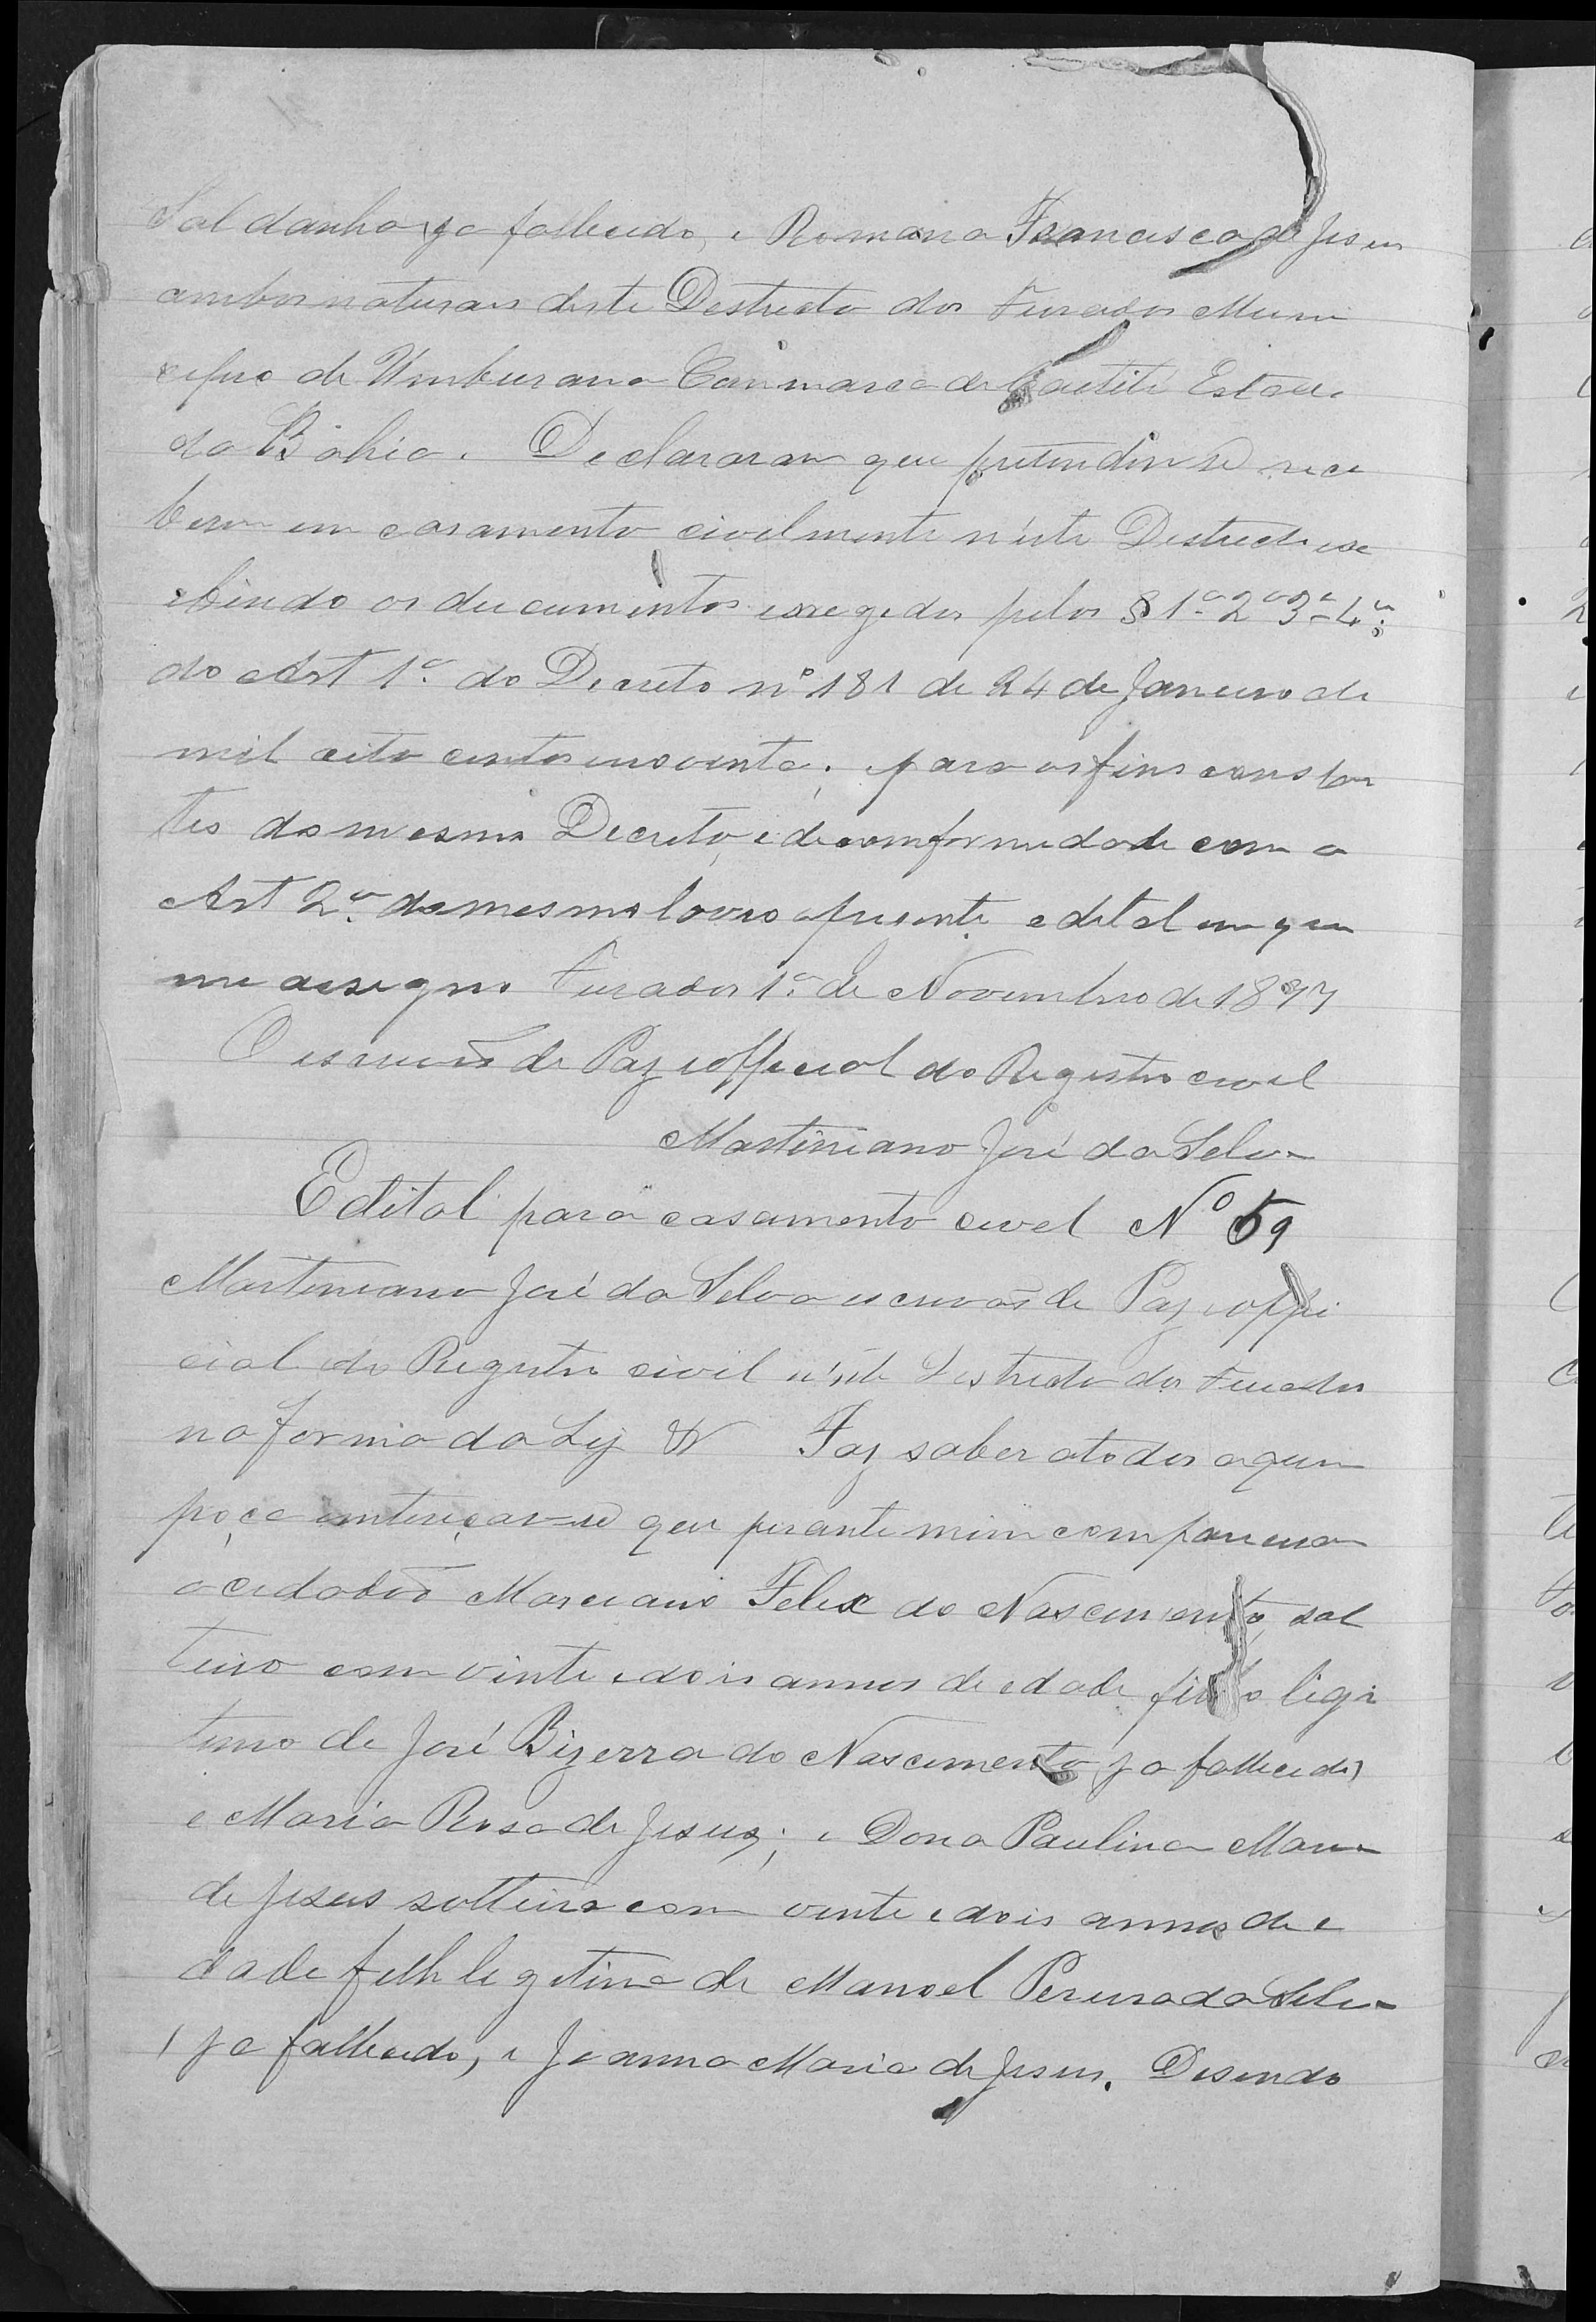 Saldanha, ja fallecido, e Romana Francisca de Jesus
ambos naturais deste Destricto dos Furados Muni
cipio de Umburana Commarca de Caetité Estado
da Bahia. Declararam que pretendem se rece
berem em casamento civilmente n'este Destricto exe
bindo os ducumentos exegedos pelos § 1º 2º 3º 4º
do Art 1º do Decreto nº 181 de 24 de Janeiro de
mil oito centos inoventa; e para os fins constan
tes do mesmo Decreto, e de comformedade com o
Art 2º do mesmo lavro o presente edital em que
me assigno Furados 1º de Novembro de 1897
O escrivão de Paz e official do Registro civel
Martiniano José da Selva
Edital para casamento civel Nº 59
Martiniano José da Selva escrivão de Paz e offi
cial do Registro civil n'este Destricto dos Furados
na forma da Ley & Faz saber a todos a quem
poça entereçar-se que perante mim compareceu
o cidadão Marciano Felix do Nascimento, sol
teiro com vinte e dois annos de edade filho legi
timo de José Bizerra do Nascimento, ja fallecido,
e Maria Rosa de Jesus; e Dona Paulina Maria
de Jesus solteira com vinte e dois annos de e
dade filh legetima de Manoel Pereira da Selva
, ja fallecido, e Joanna Maria de Jesus. Desendo